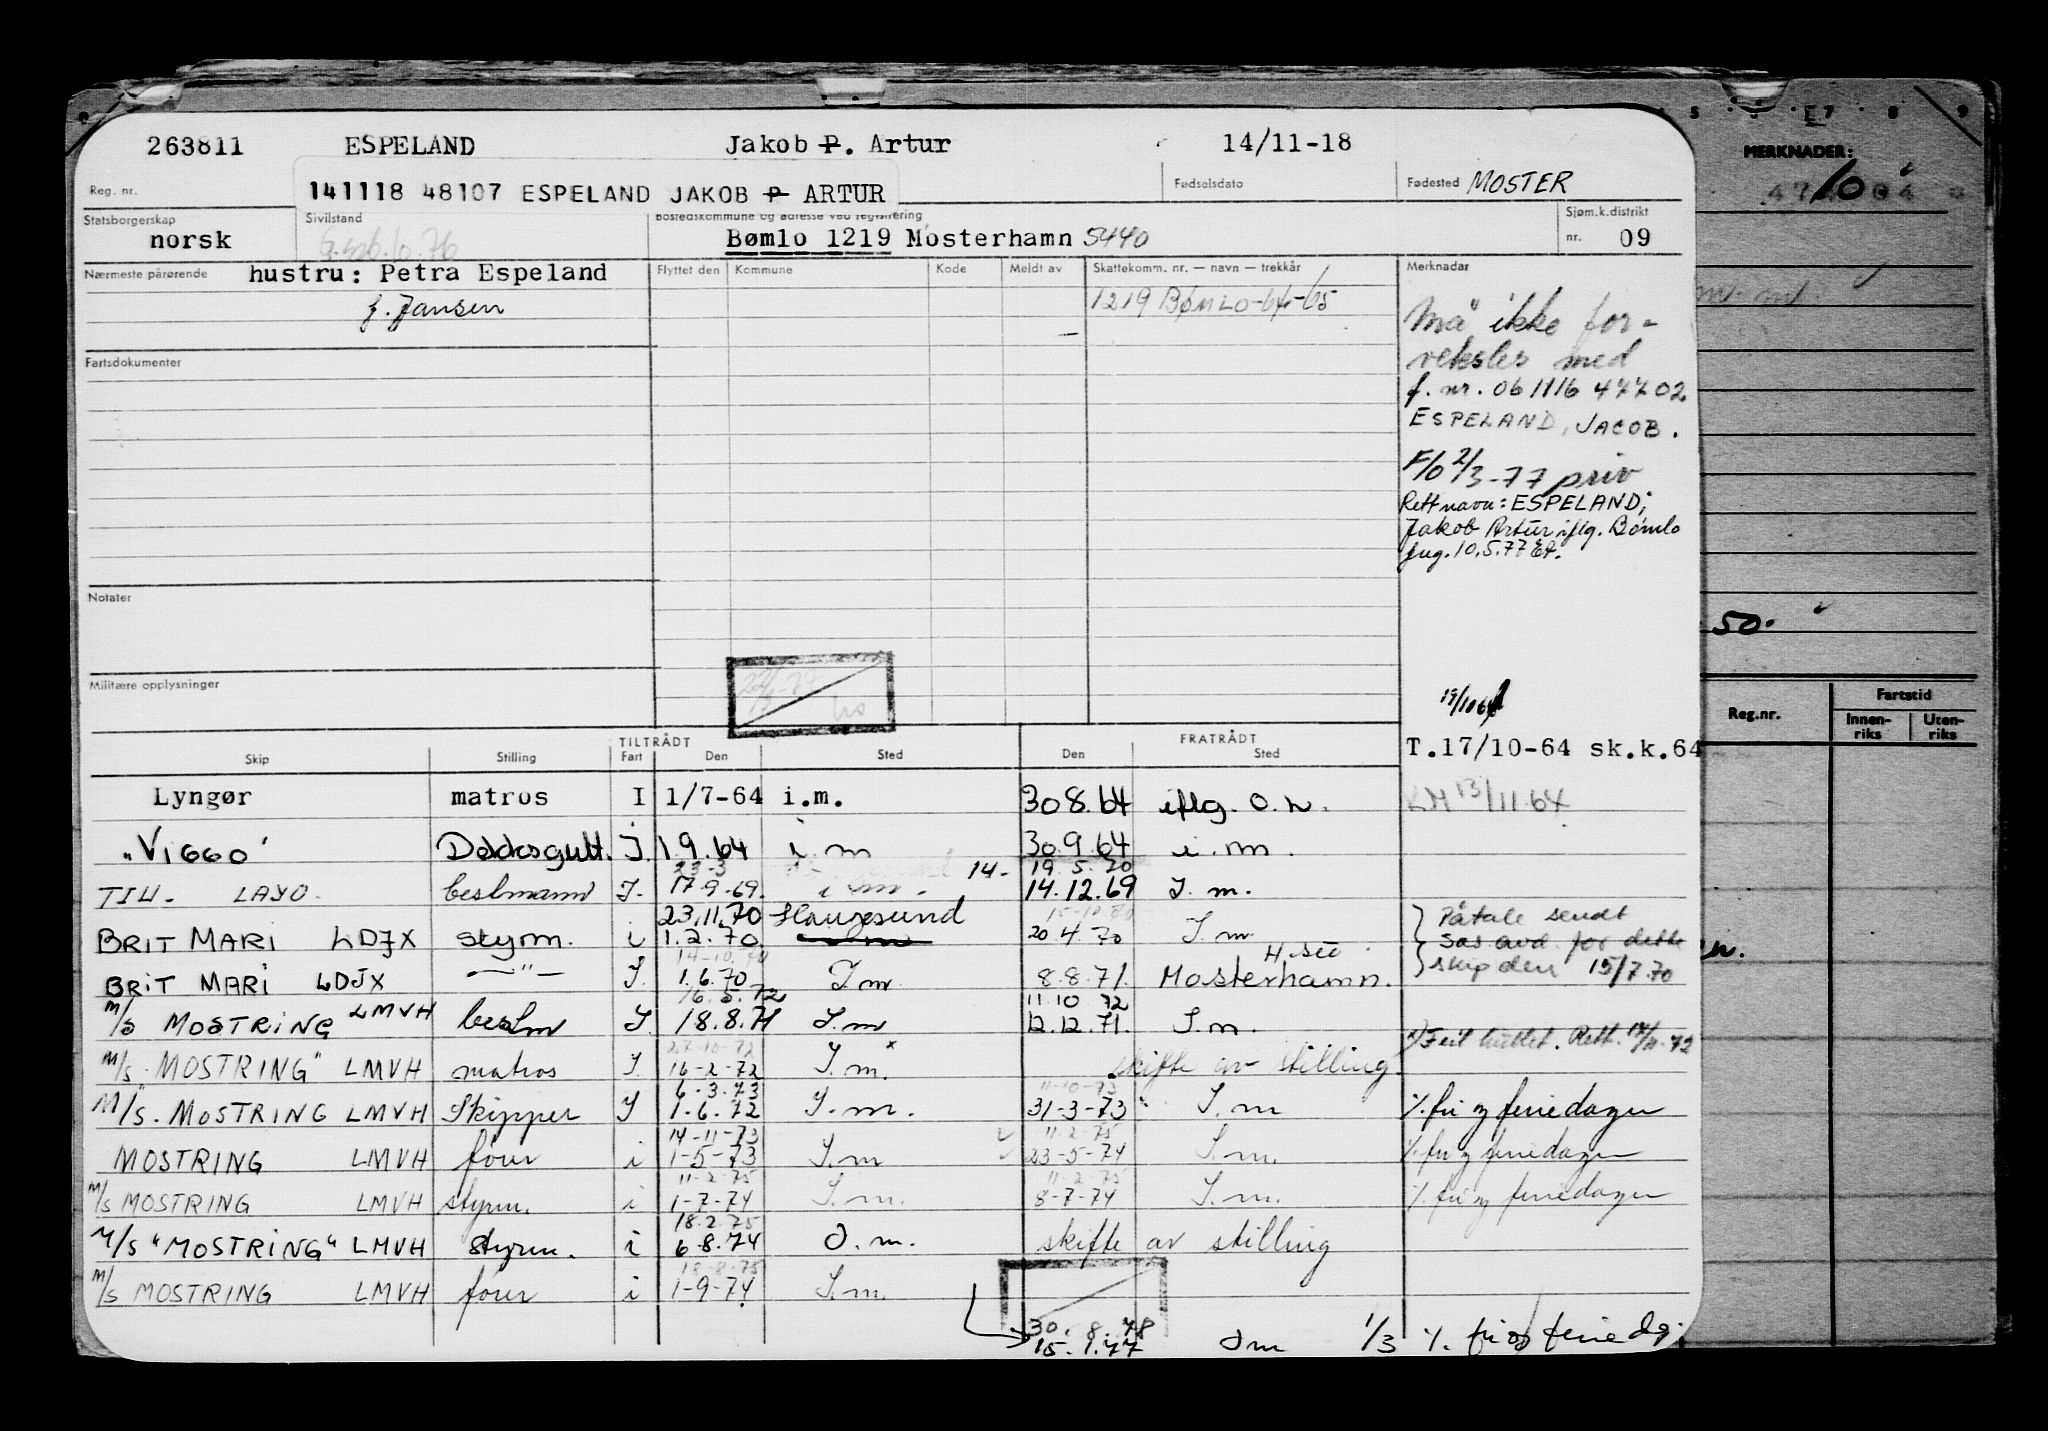 263811 ESPELAND Jakob P. Artur 14/11-18
Reg. nr. Fødselsdato Fødested MOSTER
141118 48107 ESPELAND JAKOB P ARTUR
Statsborgerskap Sivilstand Bostedskommune og adresse ved registrering Sjøm.k.distrikt
norsk Bømlo 1219 Mosterhamn 5440 nr. 09
Nærmeste pårørende hustru: Petra Espeland Flyttet den Kommune Kode Meldt av Skattekomm. nr. — navn — trekkår Merknader
f. Jansen 1219 BØMLO-64-65
Må ikke for-
veksles med
Fartsdokumenter
f. nr. 061116 47702
ESPELAND, JACOB.
F/O 2/3-77 priv
Rett navn: ESPELAND;
Jakob Artur iflg. Bømlo
10.5.77
Notater
Militære opplysninger
T.17/10-64 sk.k.64
TILTRÅDT FRATRÅDT
Skip Stilling Fart Den Sted Den Sted
Lyngør matros I 1/7-64 i.m. 30.8.64 iflg. O.L. 13/11.64
"VIGGO" Dekksgutt. I 1.9.64 i.m 30.9.64 i.m.
23-3 14- 19.5.70
TIH- LAYO. bestmann I. 17.9.69. i m. 14.12.69 I.m.
23.11.70 Haugesund
BRIT MARI LDJX styrm. i 1.2.70 20.4.70 I.m.
Påtale sendt
Sos avd. for dette
skip den 15/7.70
14-10.70 H.sud
BRIT MARI LDJX —"— I. 1.6.70 I.m. 8.8.71. Mosterhamn.
16.5.72 11.10 72
M/S MOSTRING LMVH bestm I. 18.8.71 I.m 12.12.71. I.m.
27-10-72
M/S "MOSTRING" LMVH matros I. 16-2-72 I.m. x skifte av stilling x) Feil
6.3.73 11-10-73
M/S. MOSTRING LMVH Skipper I 1-6.72 I.m. 31-3-73 I.m ٪ fri og feriedager
14-11-73 11-2-75
MOSTRING LMVH fører i 1-5-73 I.m 23-5-74 I.m. ٪ fri og feriedager
11-2-75 11-2-75
M/S MOSTRING LMVH styrm. i 1-7-74 I.m. 8-7-74 I.m. ٪ fri og feriedager
18.2.75
M/S "MOSTRING" LMVH styrm. i 6.8.74 I.m. skifte av stilling
18-8-75
M/S MOSTRING LMVH fører i 1-9-74 I.m.
30. 8.78
15.1.77 I m 1/3 ٪ fri og feriedg.
MERKNADER:
50.
Reg.nr. Fartstid
Innen-riks Uten-riks